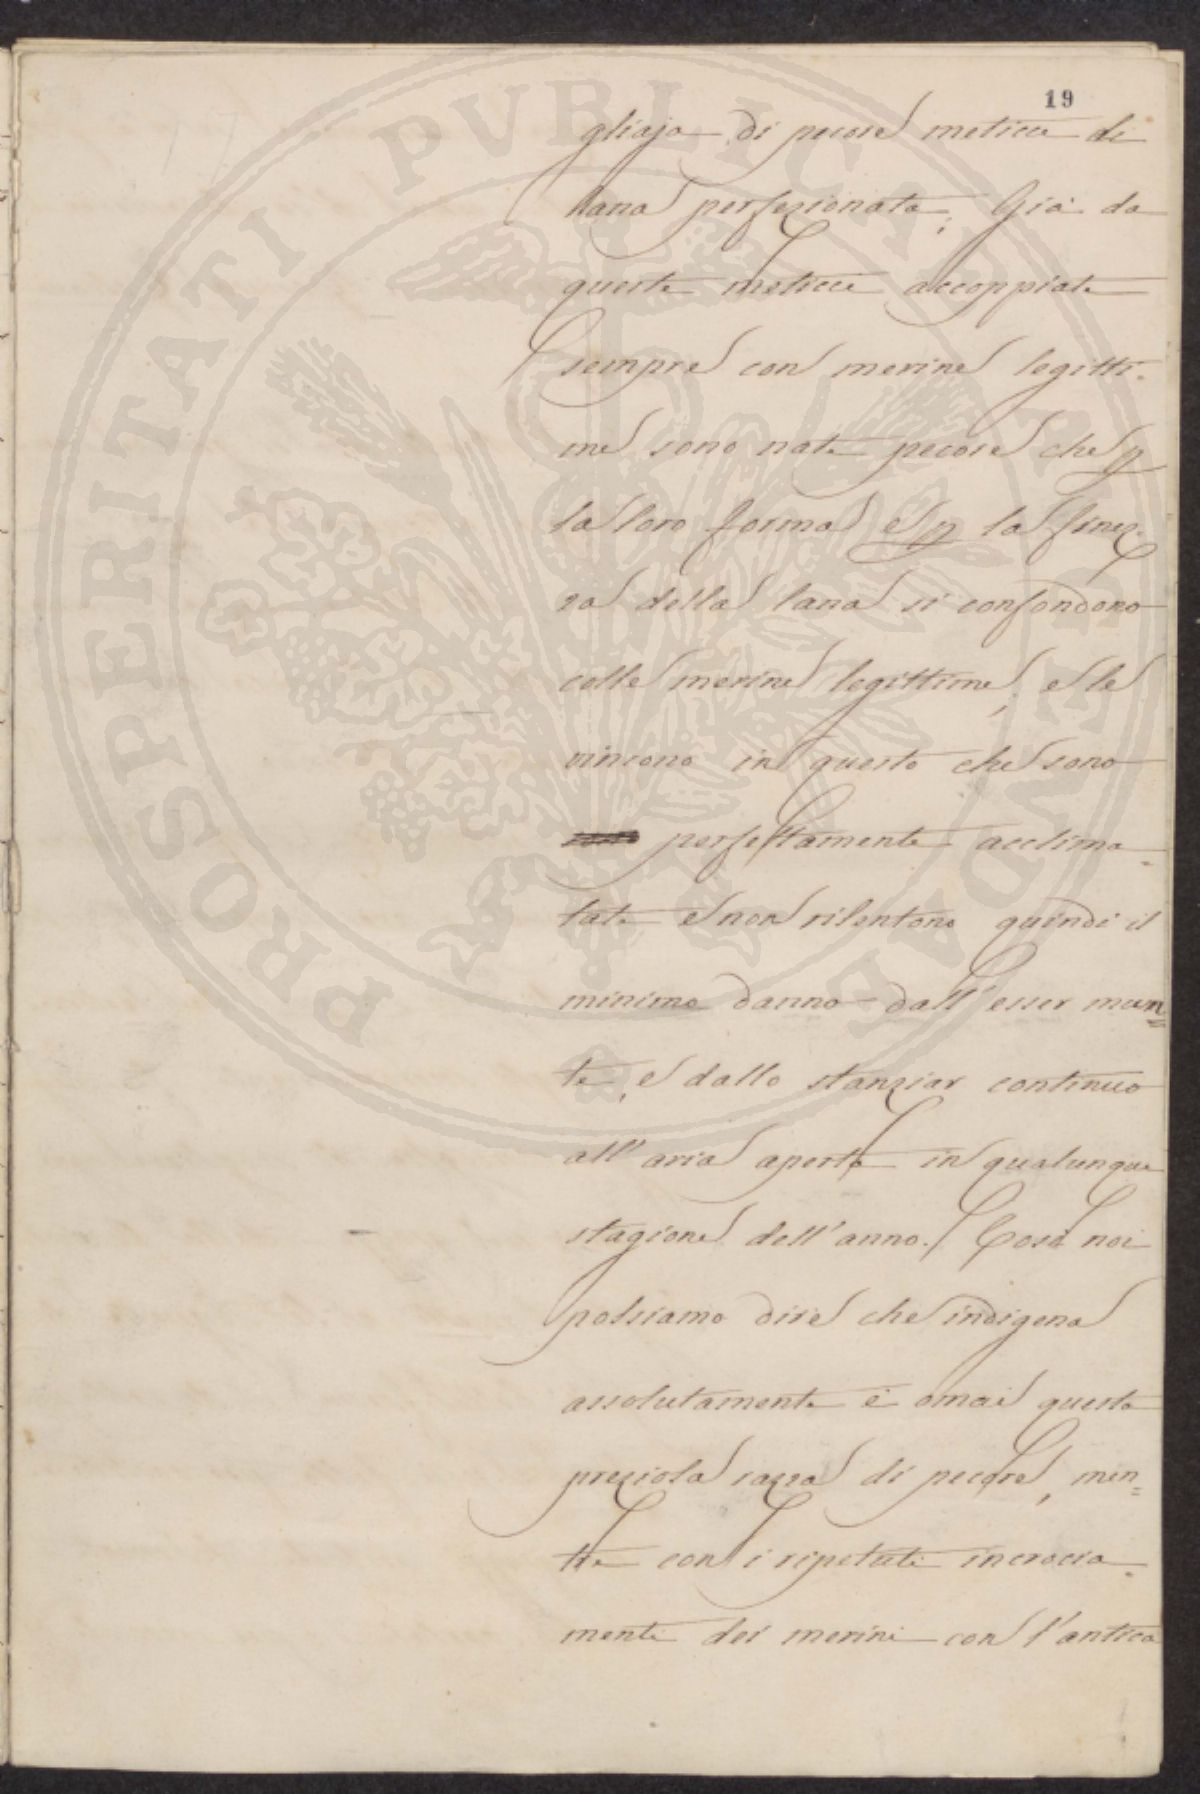 19
gliaja di pecore meticce di
lana perfezionata; Già da
queste meticce accoppiate
sempre con merine legitti-
me sono nate pecore che p
la loro forma e p la finez-
za della lana si confondono
colle merine legittime, e le
vincono in questo che sono
perfettamente acclima=
tate e non risentono quindi il
minimo danno dall'esser mun=
te, e dallo stanziar continuo
all'aria aperta in qualunque
stagione dell'anno. Così noi
possiamo dire che indigena
assolutamente è omai questa
preziosa razza di pecore, men=
tre con i ripetuti incrocia-
menti dei merini con l'antica
PROSPERITATI PUBLICAE AUGENDAE